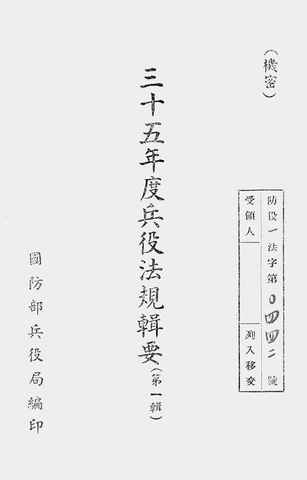 (機密)
防役一法字第0四四二號
受領人
列入移交
三十五年度兵役法規輯要(第一輯)
國防部兵役局編印